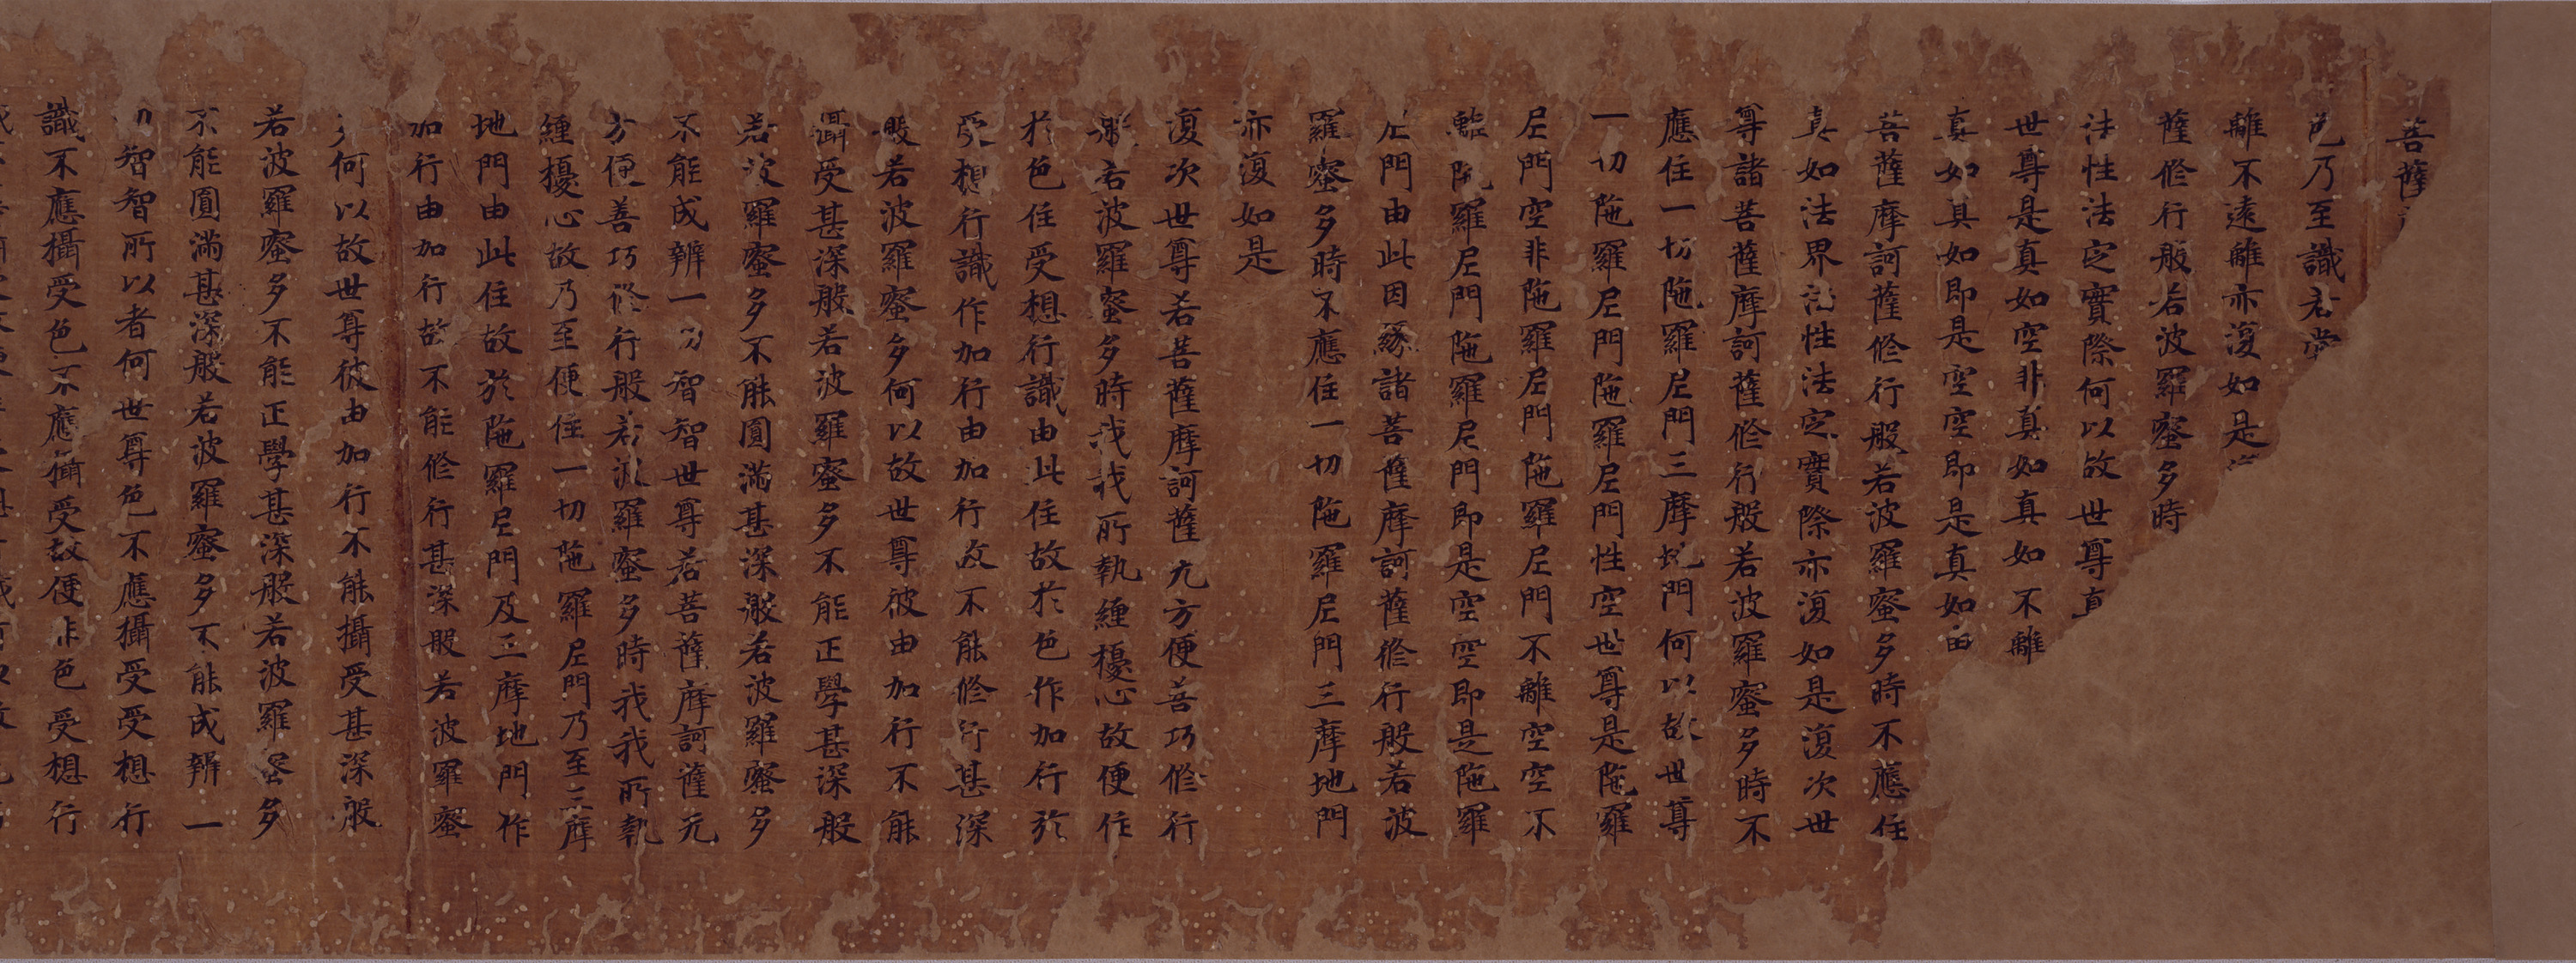 菩薩
色乃至識若當
離不遠離亦復如是
薩修行般若波羅蜜多時
法性法定實際何以故世尊真
世尊是真如空非真如真如不離
真如真如即是空空即是真如
菩薩摩訶薩修行般若波羅蜜多時不應住
真如法界法性法定實際亦復如是復次世
尊諸菩薩摩訶薩修行般若波羅蜜多時不
應住一切陁羅尼門三摩地門何以故世尊
一切陁羅尼門陁羅尼門性空世尊是陁羅
尼門空非陁羅尼門陁羅尼門不離空空不
離陁羅尼門陁羅尼門即是空空即是陁羅
尼門由此因緣諸菩薩摩訶薩修行般若波
羅蜜多時不應住一切陁羅尼門三摩地門
亦復如是
復次世尊若菩薩摩訶薩无方便善巧修行
般若波羅蜜多時我我所執纏擾心故便住
於色住受想行識由此住故於色作加行於
受想行識作加行由加行故不能修行甚深
般若波羅蜜多何以故世尊彼由加行不能
攝受甚深般若波羅蜜多不能正學甚深般
若波羅蜜多不能圓滿甚深般若波羅蜜多
不能成辦一切智智世尊若菩薩摩訶薩无
方便善巧修行般若波羅蜜多時我我所執
纏擾心故乃至便住一切陁羅尼門乃至三摩
地門由此住故於陁羅尼門及三摩地門作
加行由加行故不能修行甚深般若波羅蜜
多何以故世尊彼由加行不能攝受甚深般
若波羅蜜多不能正學甚深般若波羅蜜多
不能圓滿甚深般若波羅蜜多不能成辦一
切智智所以者何世尊色不應攝受受想行
識不應攝受色不應攝受故便非色受想行